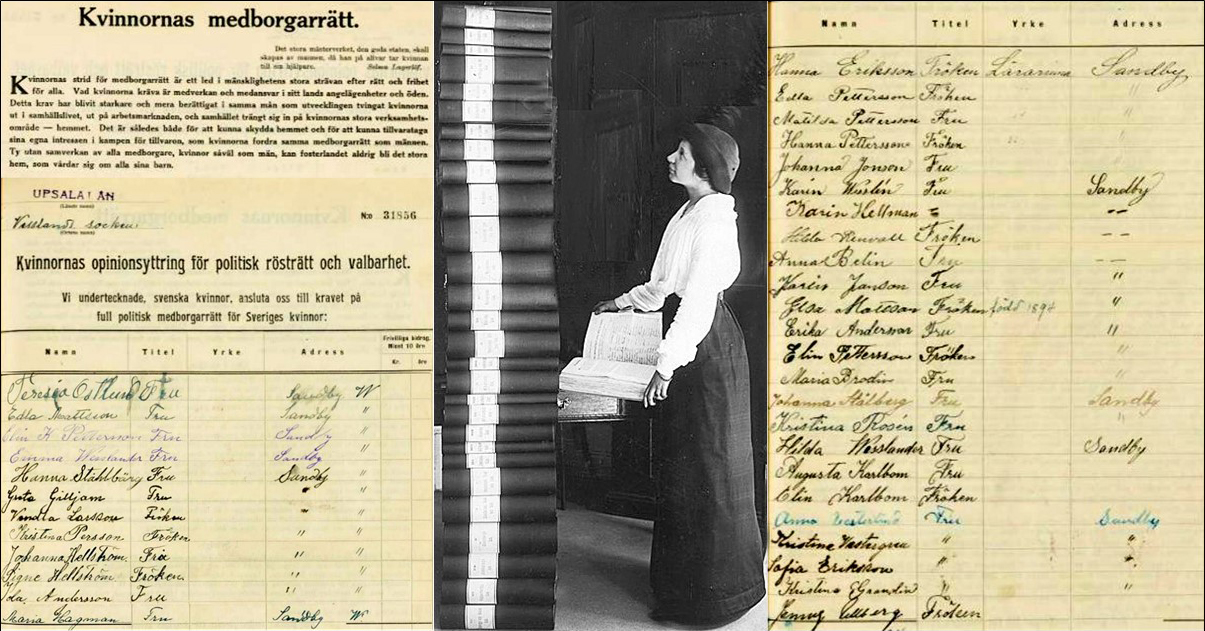 Kvinnornas medborgarrätt.
Det stora mästerverket, den goda staten, skall
skapas av mannen, då han på allvar tar kvinnan
till sin hjälpare. Selma Lagerlöf.
Kvinnornas strid för medborgarrätt är ett led i mänsklighetens stora strävan efter rätt och frihet
för alla. Vad kvinnorna kräva är medverkan och medansvar i sitt lands angelägenheter och öden.
Detta krav har blivit starkare och mera berättigat i samma mån som utvecklingen tvingat kvinnorna
ut i samhällslivet, ut på arbetsmarknaden, och samhället trängt sig in på kvinnornas stora verksamhets-
område — hemmet. Det är således både för att kunna skydda hemmet och för att kunna tillvarataga
sina egna intressen i kampen för tillvaron, som kvinnorna fordra samma medborgarrätt som männen.
Ty utan samverkan av alla medborgare, kvinnor såväl som män, kan fosterlandet aldrig bli det stora
hem, som vårdar sig om alla sina barn.
UPSALA LÄN
(Länets namn)
socken
No 31856
(Ortens namn)
Kvinnornas opinionsyttring för politisk rösträtt och valbarhet.
Vi undertecknade, svenska kvinnor, ansluta oss till kravet på
full politisk medborgarrätt för Sveriges kvinnor:
Namn Titel Yrke Adress Frivilliga bidrag. Minst 10 öre Kr. öre
Teresia Östlund Fru Sandby W
Edla Mattsson Fru Sandby "
Elin K Pettersson Fru Sandby "
Emma Wesslander Fru Sandby "
Hanna Ståhlbärg Fru Sandby "
Greta Gilljam Fru " "
Vendla Larsson Fröken " "
Kristina Persson Fröken " "
Johanna Hellström Fru " "
Signe Hellström Fröken " "
Ida Andersson Fru " "
Maria Hagman Fru Sandby W
Namn Titel Yrke Adress
Hanna Eriksson Fröken Lärarinna Sandby
Edla Pettersson Fröken "
Matilda Pettersson Fru "
Hanna Pettersson Fröken "
Johanna Jonson Fru "
Karin Weslin Fru Sandby
Karin Hellman "
Hilda Fröken "
Anna Belin Fru "
Karin Janson Fru "
Elsa Mattsson Fröken född 1894 "
Erika Andersson Fru "
Elin Pettersson Fröken "
Maria Brodin Fru "
Johanna Stålberg Fru Sandby
Kristina Rosén Fru "
Hilda Wesslander Fru Sandby
Augusta Karlbom Fru "
Elin Karlbom Fröken "
Anna Fru Sandby
Kristina " "
Sofia Eriksson " "
Kristina " "
Jenny Fröken